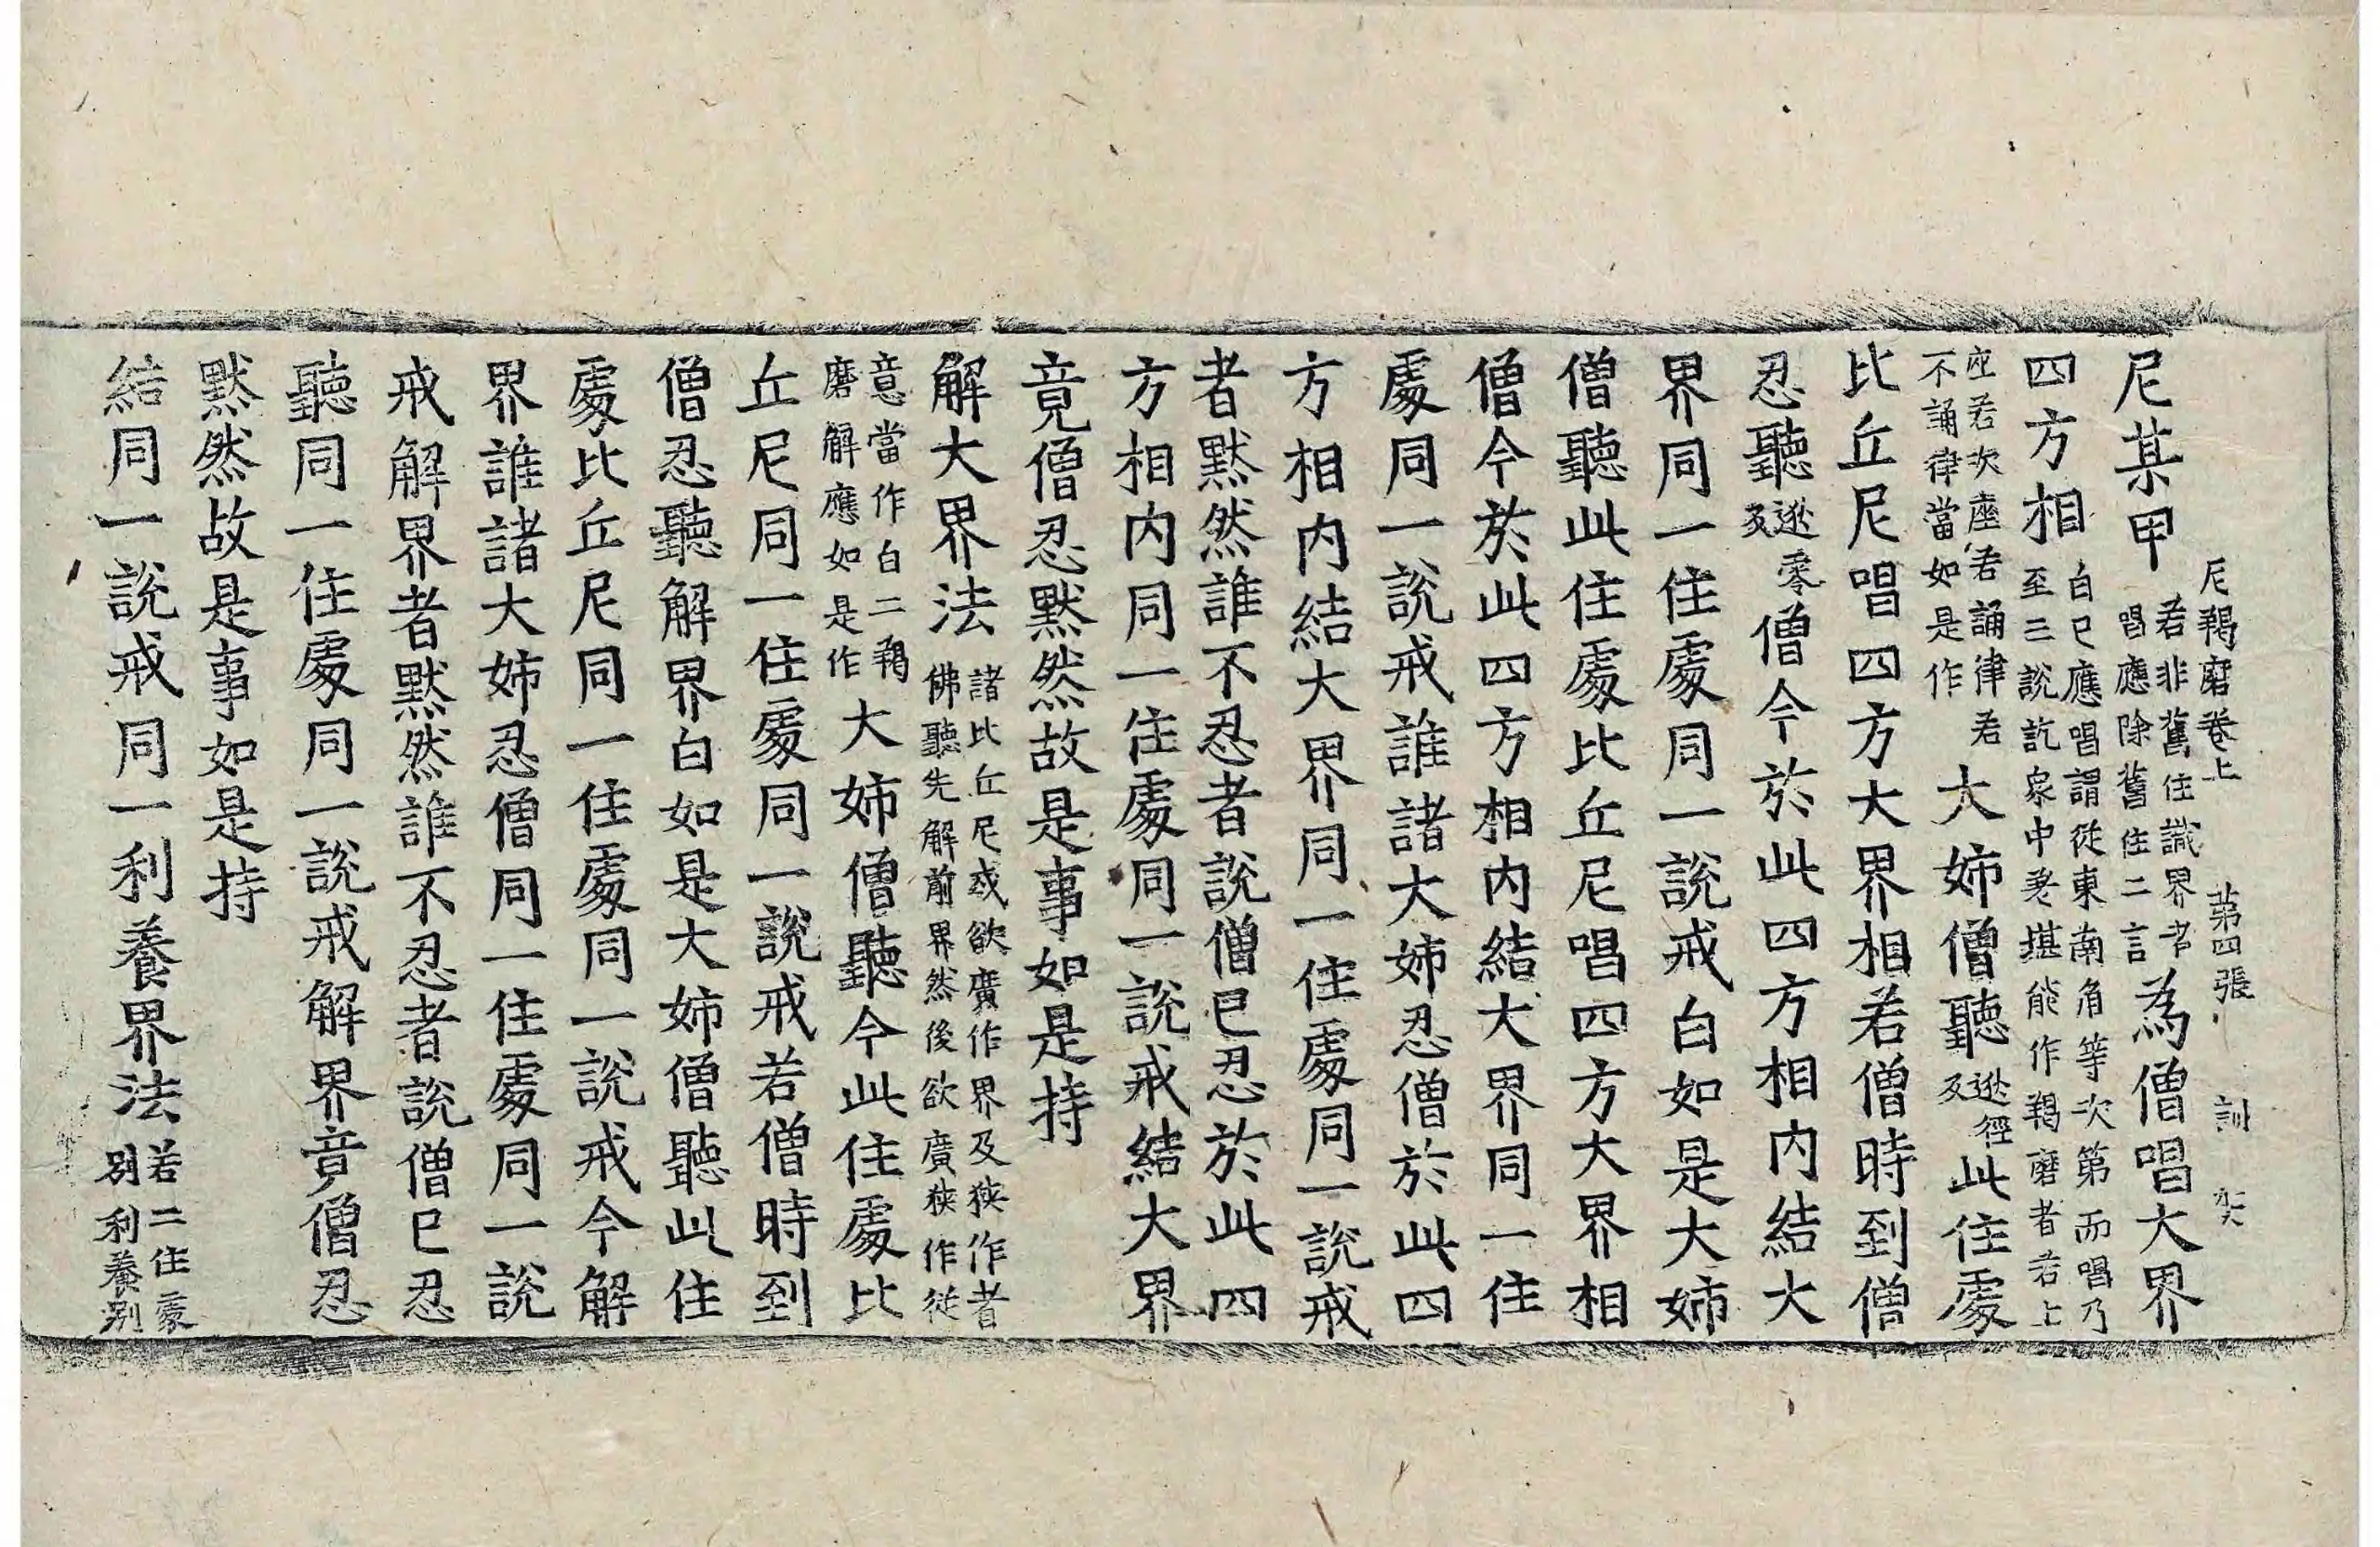 尼羯磨卷上 第四張 訓
尼某甲 若非舊住識界者 唱應除舊住二言 為僧唱大界
四方相 白已應唱謂從東南角等次第而唱乃 至三說訖衆中差堪能作羯磨者若上
座若次座若誦律若 不誦律當如是作 大姉僧聽 此住處
比丘尼唱四方大界相若僧時到僧
忍聽 僧今於此四方相内結大
界同一住處同一說戒白如是大姉
僧聽此住處比丘尼唱四方大界相
僧今於此四方相内結大界同一住
處同一說戒誰諸大姉忍僧於此四
方相内結大界同一住處同一說戒
者默然誰不忍者說僧已忍於此四
方相内同一住處同一說戒結大界
竟僧忍默然故是事如是持
解大界法 諸比丘尼或欲廣作界及狹作者 佛聽先解前界然後欲廣狹作從
意當作白二羯 磨解應如是作 大姉僧聽今此住處比
丘尼同一住處同一說戒若僧時到
僧忍聽解界白如是大姉僧聽此住
處比丘尼同一住處同一說戒今解
界誰諸大姉忍僧同一住處同一說
戒解界者默然誰不忍者說僧已忍
聽同一住處同一說戒解界竟僧忍
默然故是事如是持
結同一說戒同一利養界法 若二住處 別利養別